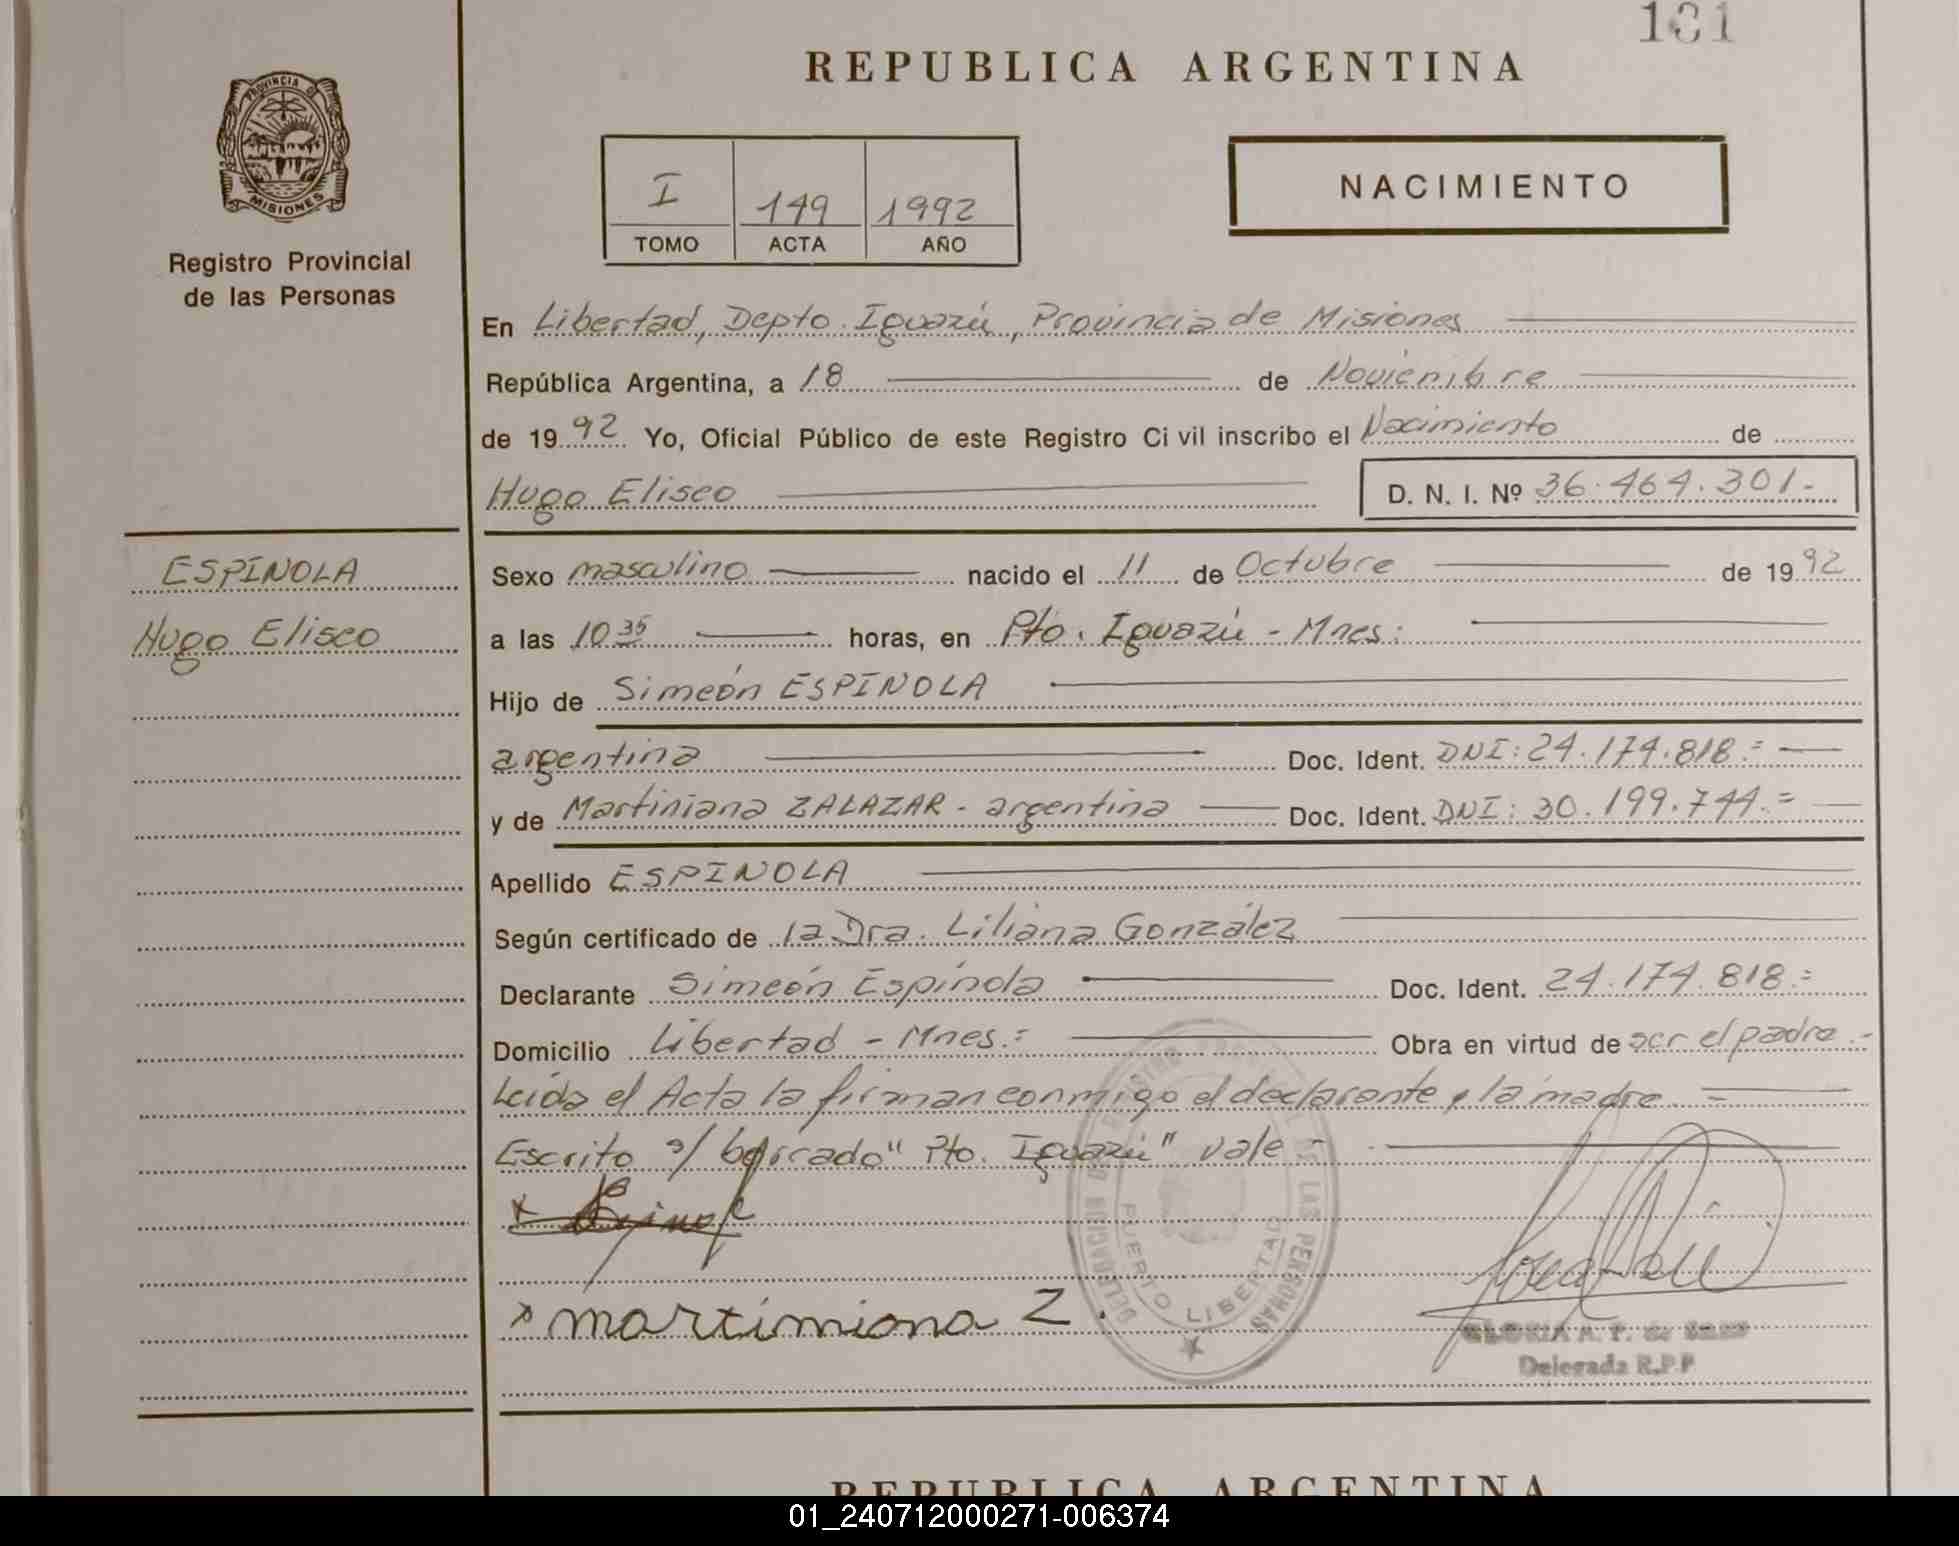 101
REPUBLICA ARGENTINA
PROVINCIA DE
MISIONES
Registro Provincial
de las Personas
I 149 1992
TOMO ACTA AÑO
NACIMIENTO
En Libertad, Depto. Iguazú, Provincia de Misiones
República Argentina, a 18 de Noviembre
de 1992 Yo, Oficial Público de este Registro Civil inscribo el Nacimiento de
Hugo Eliseo D. N. I. Nº 36.464.301.-
ESPINOLA
Hugo Eliseo
Sexo masculino nacido el 11 de Octubre de 1992
a las 10 35 horas, en Pto. Iguazú - Mnes:
Hijo de Simeón ESPINOLA
argentina Doc. Ident. DNI: 24.174.818.=
y de Martiniana ZALAZAR - argentina Doc. Ident. DNI: 30.199.744.=
Apellido ESPINOLA
Según certificado de la Dra. Liliana González
Declarante Simeón Espínola Doc. Ident. 24.174.818.=
Domicilio Libertad - Mnes.= Obra en virtud de ser el padre.-
Leída el Acta la firman conmigo el declarante y la madre =
Escrito s/ borrado "Pto. Iguazú" vale -
x
x martimiona Z.
DELEGACION DEL REGISTRO PROVINCIAL DE LAS PERSONAS
PUERTO LIBERTAD
GLORIA A. F. de
Delegada R.P.P.
REPUBLICA ARGENTINA
01_240712000271-006374